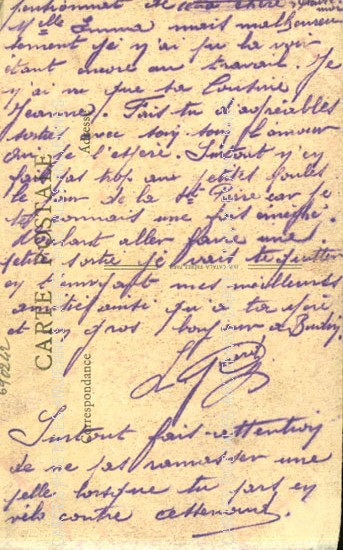 pensionnat de
Melle Emma mais malheureu
sement je n'y ai pu la voir
étant encore au travail. Je
n'y ai vu que sa cousine
Jeanne. Fais tu d'agréables
sorties avec ton l'amour
oui je l'espère. Surtout n'en
fais pas trop aux petites poules
le jour de la car je
te connais une fois
allant aller faire une
petite sortie je vais te quitter
en t'envoyant mes meilleures
amitiés ainsi qu'à ta mère
et un gros bonjour à
Surtout fais attention
de ne pas ramasser une
pelle lorsque tu pars en
vélo contre
CARTE POSTALE
Correspondance
Adresse